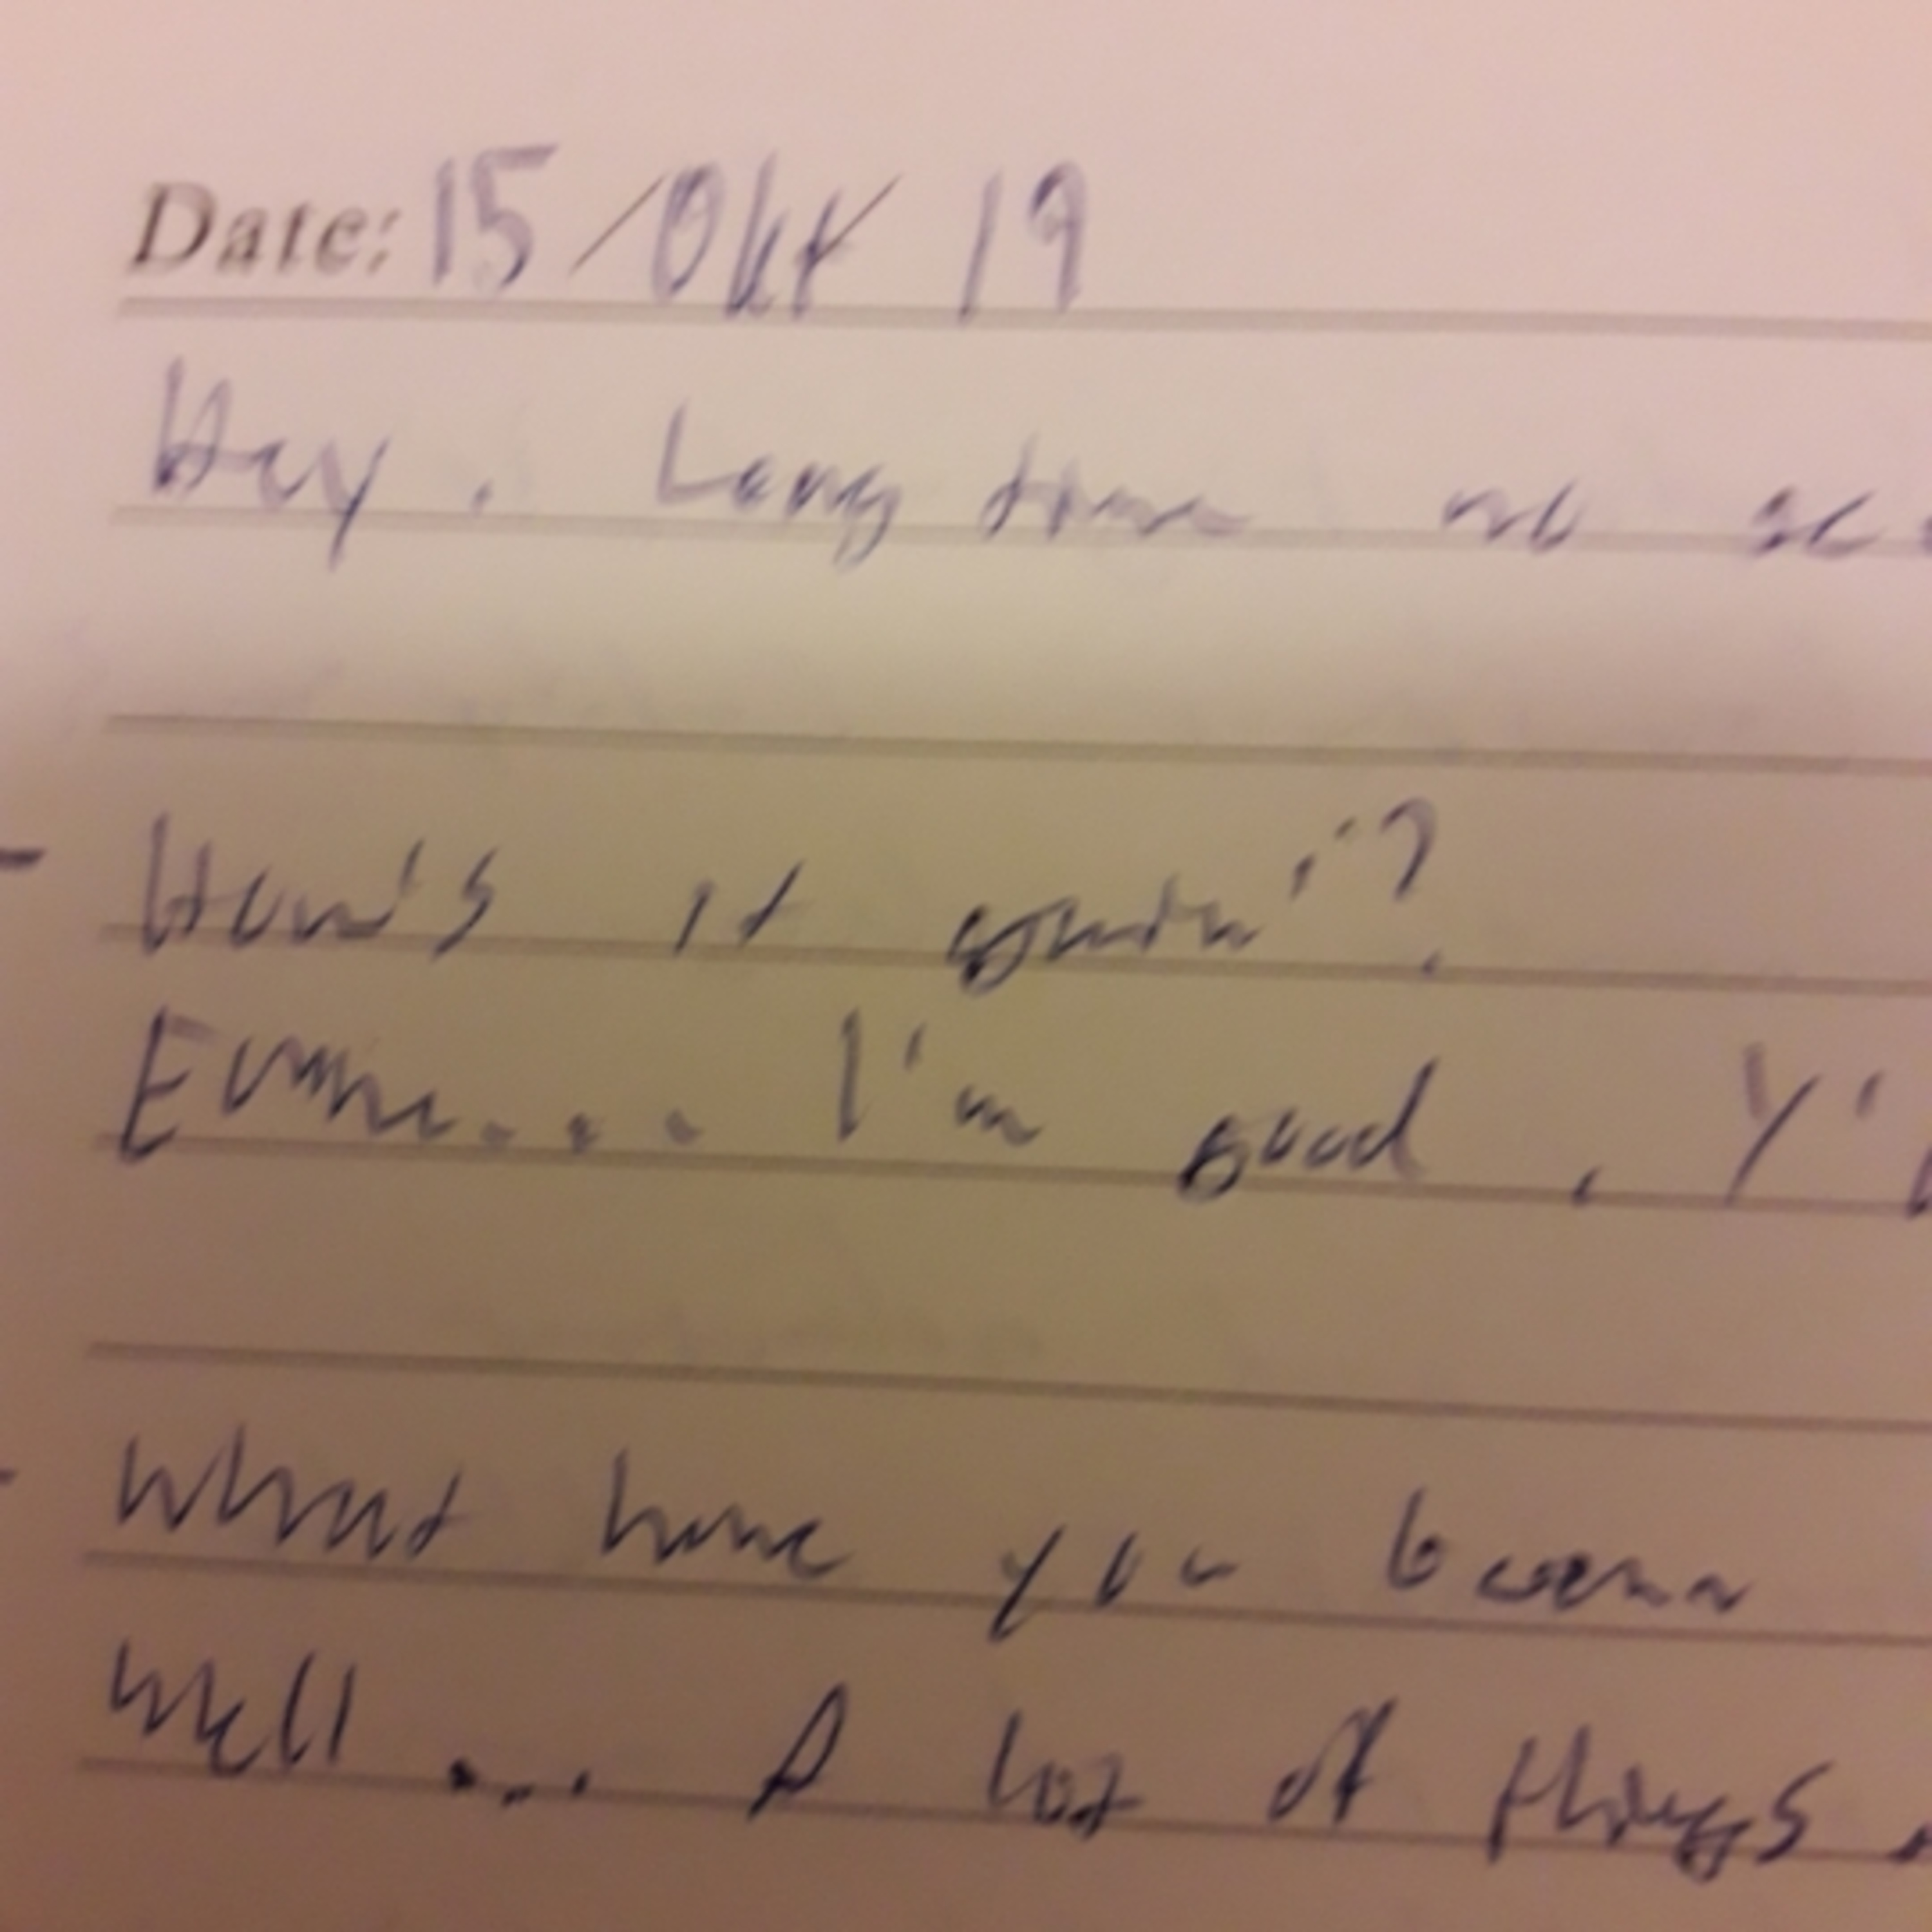 Date: 15/Okt/19
Hey. Long time no see
- How's it goin'?
I'm good, Y'
- What have you been
Well... A lot of things.